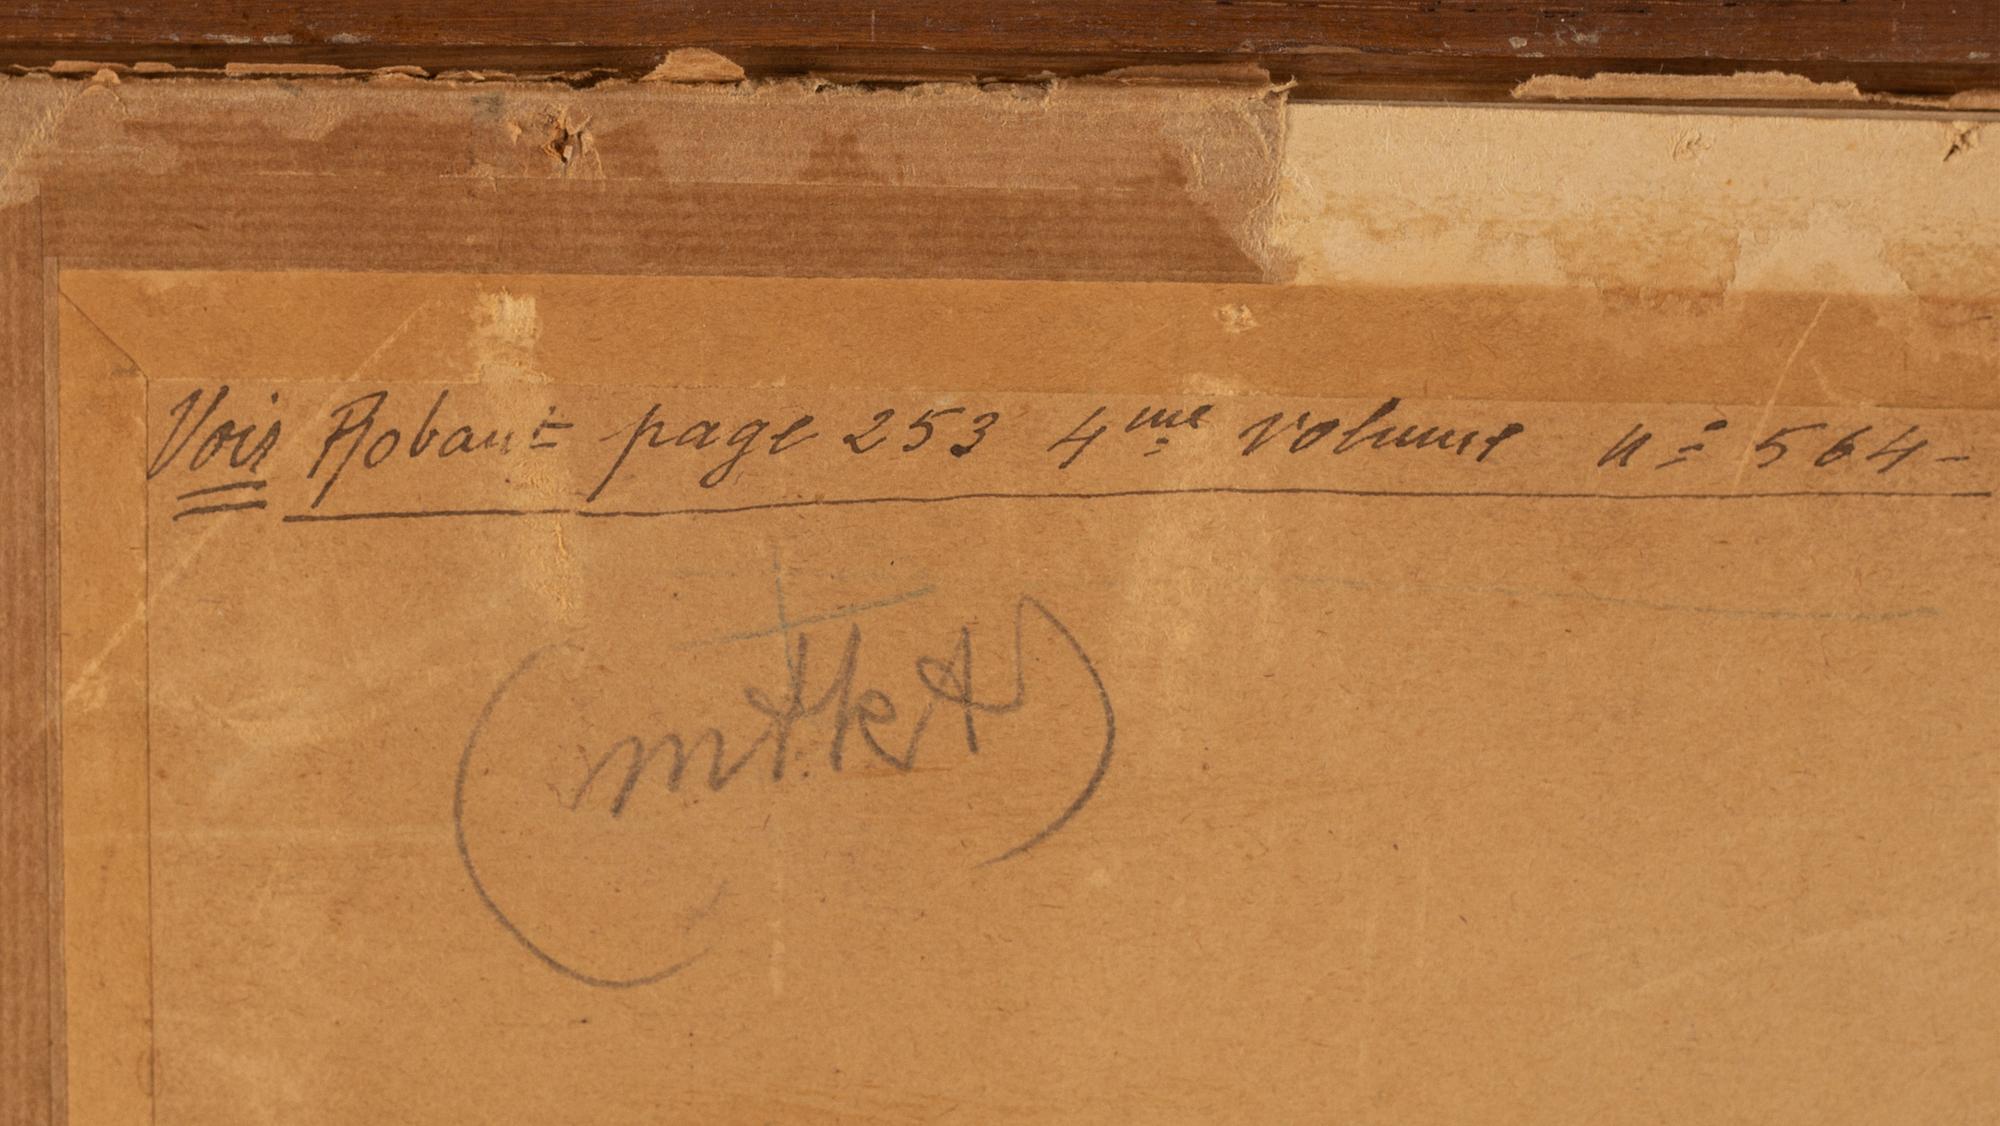 Voir Robaut page 253 4me volume nº 564-